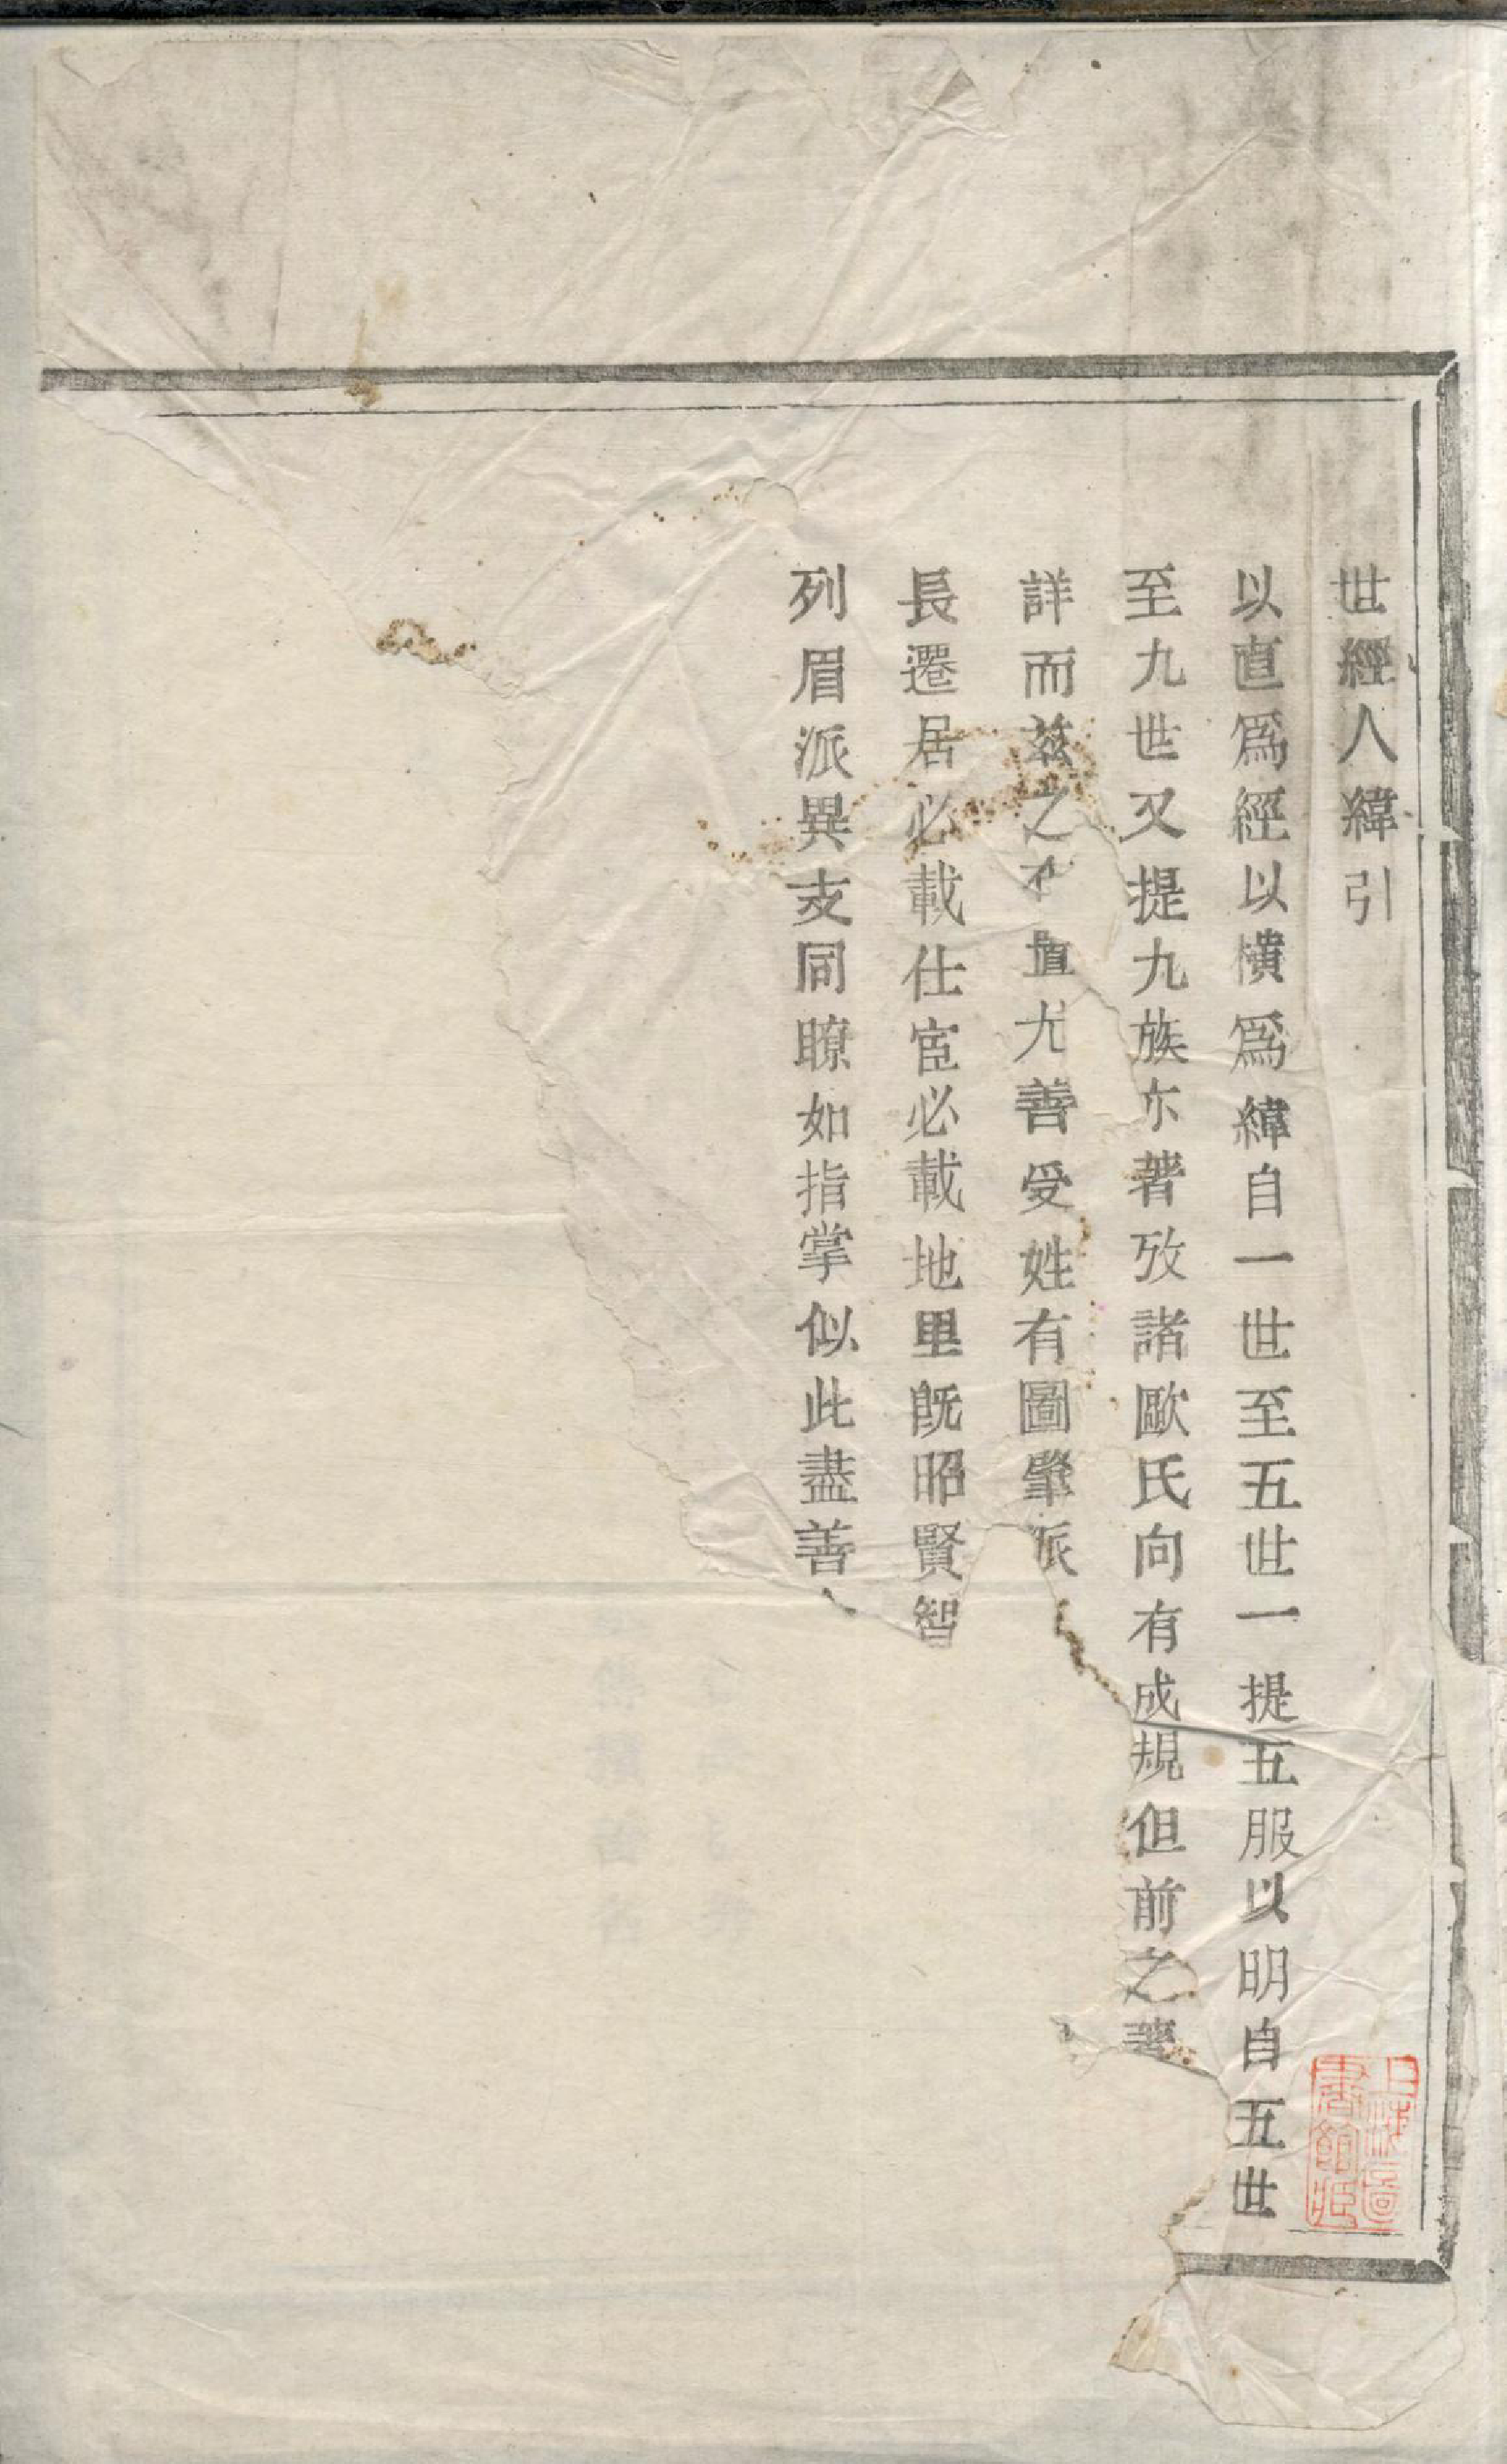 世經人緯引
以直爲經以橫爲緯自一世至五世一提五服以明自五世
至九世又提九族亦著攷諸歐氏向有成規但前之
詳而茲之不 尤善受姓有圖肇派
長遷居必載仕宦必載地里旣昭賢智
列眉派異支同瞭如指掌似此盡善
上海圖
書館藏